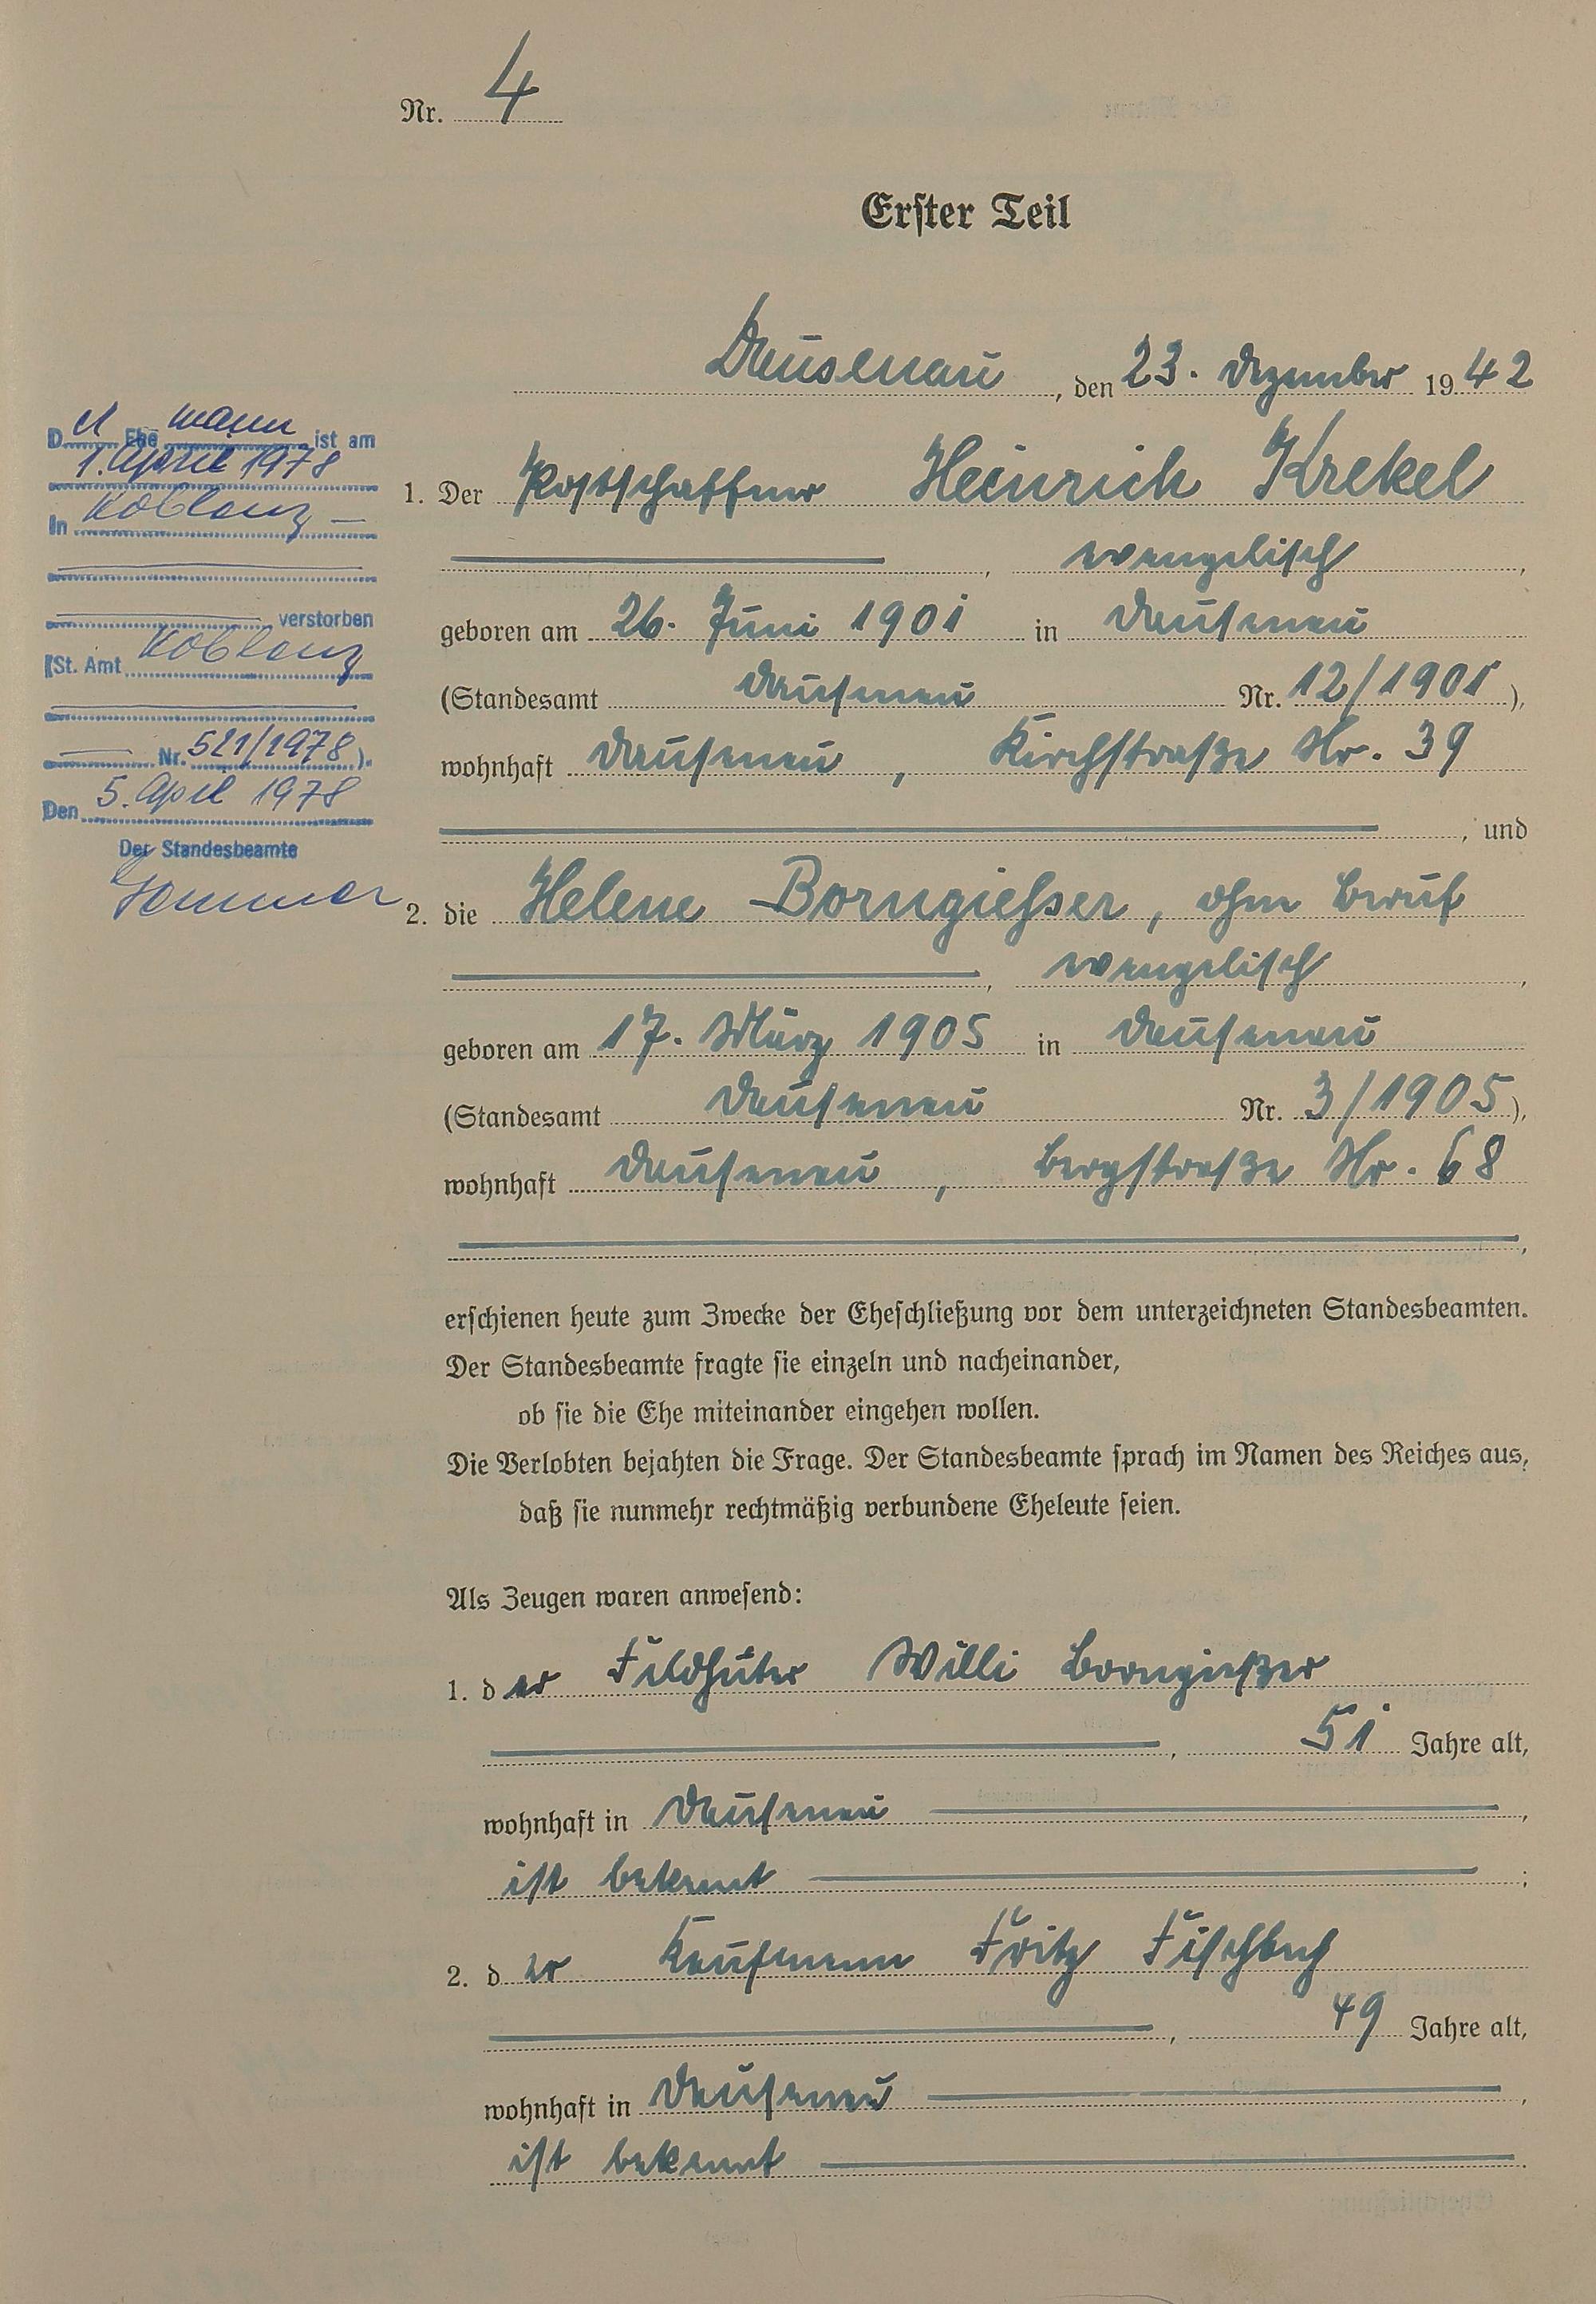 Nr. 4
Erster Teil
Dausenau, den 23. Dezember 1942
1. Der Postschaffner Heinrich Krekel
, evangelisch,
geboren am 26. Juni 1901 in Dausenau
(Standesamt Dausenau Nr. 12/1901),
wohnhaft Dausenau, Kirchstraße Nr. 39
, und
2. die Helene Borngiesser, ohne Beruf
, evangelisch,
geboren am 17. März 1905 in Dausenau
(Standesamt Dausenau Nr. 3/1905),
wohnhaft Dausenau, Bergstraße Nr. 68
,
erschienen heute zum Zwecke der Eheschließung vor dem unterzeichneten Standesbeamten.
Der Standesbeamte fragte sie einzeln und nacheinander,
ob sie die Ehe miteinander eingehen wollen.
Die Verlobten bejahten die Frage. Der Standesbeamte sprach im Namen des Reiches aus,
daß sie nunmehr rechtmäßig verbundene Eheleute seien.
Als Zeugen waren anwesend:
1. der Feldhüter Willi Borngießer
, 51 Jahre alt,
wohnhaft in Dausenau,
ist bekannt;
2. der Kaufmann Fritz Fischbach
, 49 Jahre alt,
wohnhaft in Dausenau,
ist bekannt.
Der Ehemann ist am
1. April 1978
in Koblenz
verstorben
(St. Amt Koblenz
Nr. 521/1978).
Den 5. April 1978
Der Standesbeamte